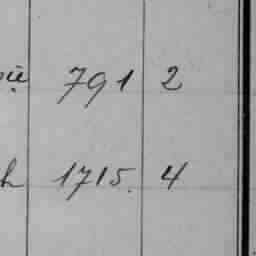 791 2
1715. 4